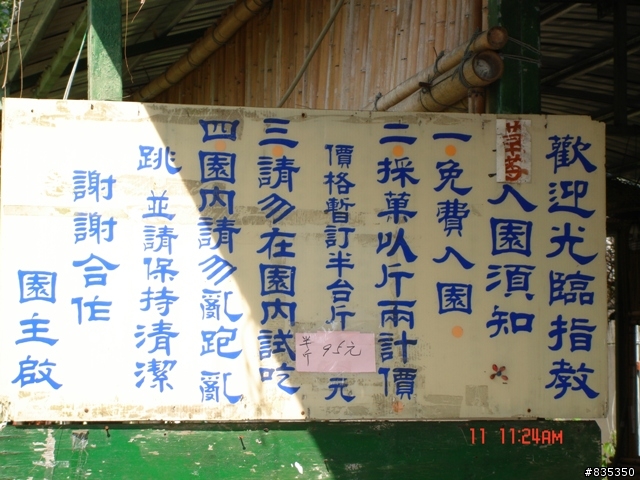 歡迎光臨指教
草莓入園須知
一免費入園
二採菓以斤兩計價
價格暫訂半台斤 元
半斤 95元
三請勿在園內試吃
四園內請勿亂跑亂
跳 並請保持清潔
謝謝合作
園主啟
11 11:24AM
#835350